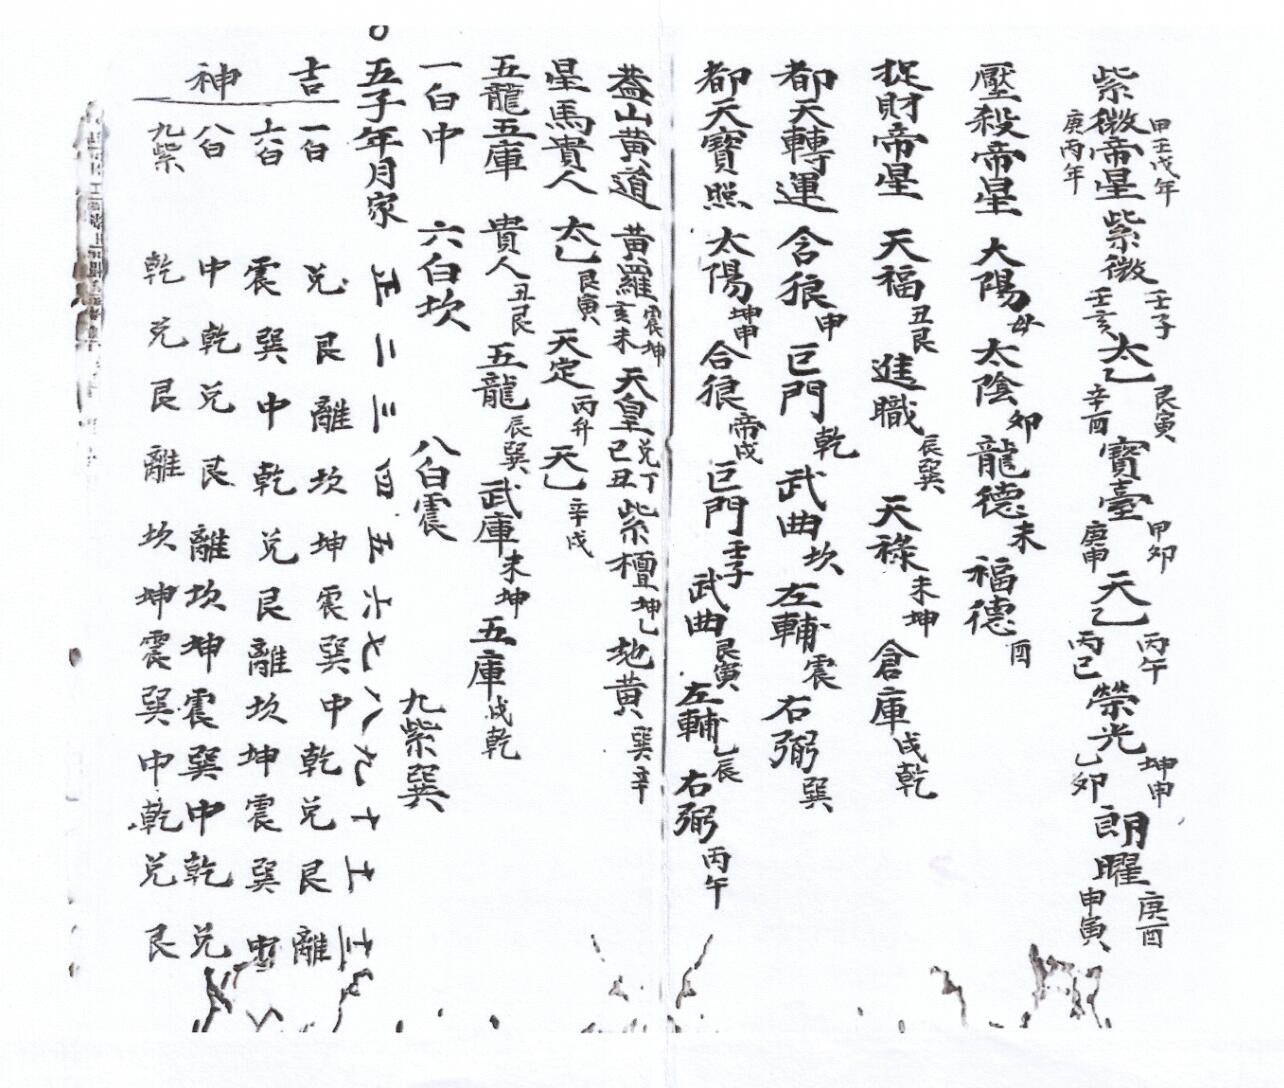 紫微帝星 甲壬戊年 庚丙年 紫微 壬子 壬亥 太乙 艮寅 辛酉 寶臺 甲卯 庚申 天乙 丙午 丙巳 榮光 坤申 乙卯 朗曜 庚酉 申寅
壓殺帝星 太陽 太陰卯 龍德未 福德酉
捉財帝星 天福丑艮 進職辰巽 天祿未坤 倉庫戌乾
都天轉運 含狼申 巨門乾 武曲坎 左輔震 右弼巽
都天寶照 太陽坤申 合狼帝戌 巨門壬子 武曲艮寅 左輔乙辰 右弼丙午
蓋山黃道 黃羅 震坤 亥未 天皇 兌丁 巳丑 紫檀坤乙 地黃巽辛
星馬貴人 太乙艮寅 天定丙 天乙辛戌
五龍五庫 貴人丑艮 五龍辰巽 武庫未坤 五庫戌乾
一白中 六白坎 八白震 九紫巽
五子年月家 正 二 三 四 五 六 七 八 九 十 十一 十二
吉神
一白 兌 艮 離 坎 坤 震 巽 中 乾 兌 艮 離
六白 震 巽 中 乾 兌 艮 離 坎 坤 震 巽 中
八白 中 乾 兌 艮 離 坎 坤 震 巽 中 乾 兌
九紫 乾 兌 艮 離 坎 坤 震 巽 中 乾 兌 艮